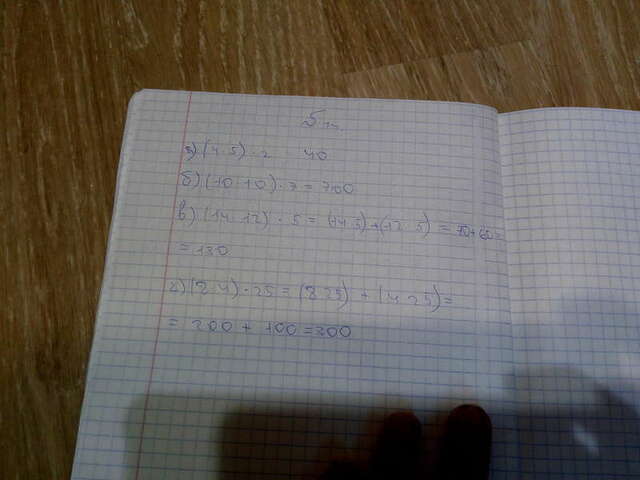 а) (4·5)·2 = 40
б) (10·10)·7 = 700
в) (14·12)·5 = (14·5)+(12·5) = 70+60=
= 130
г) (8·4)·25 = (8·25) + (4·25)=
= 200 + 100 = 300